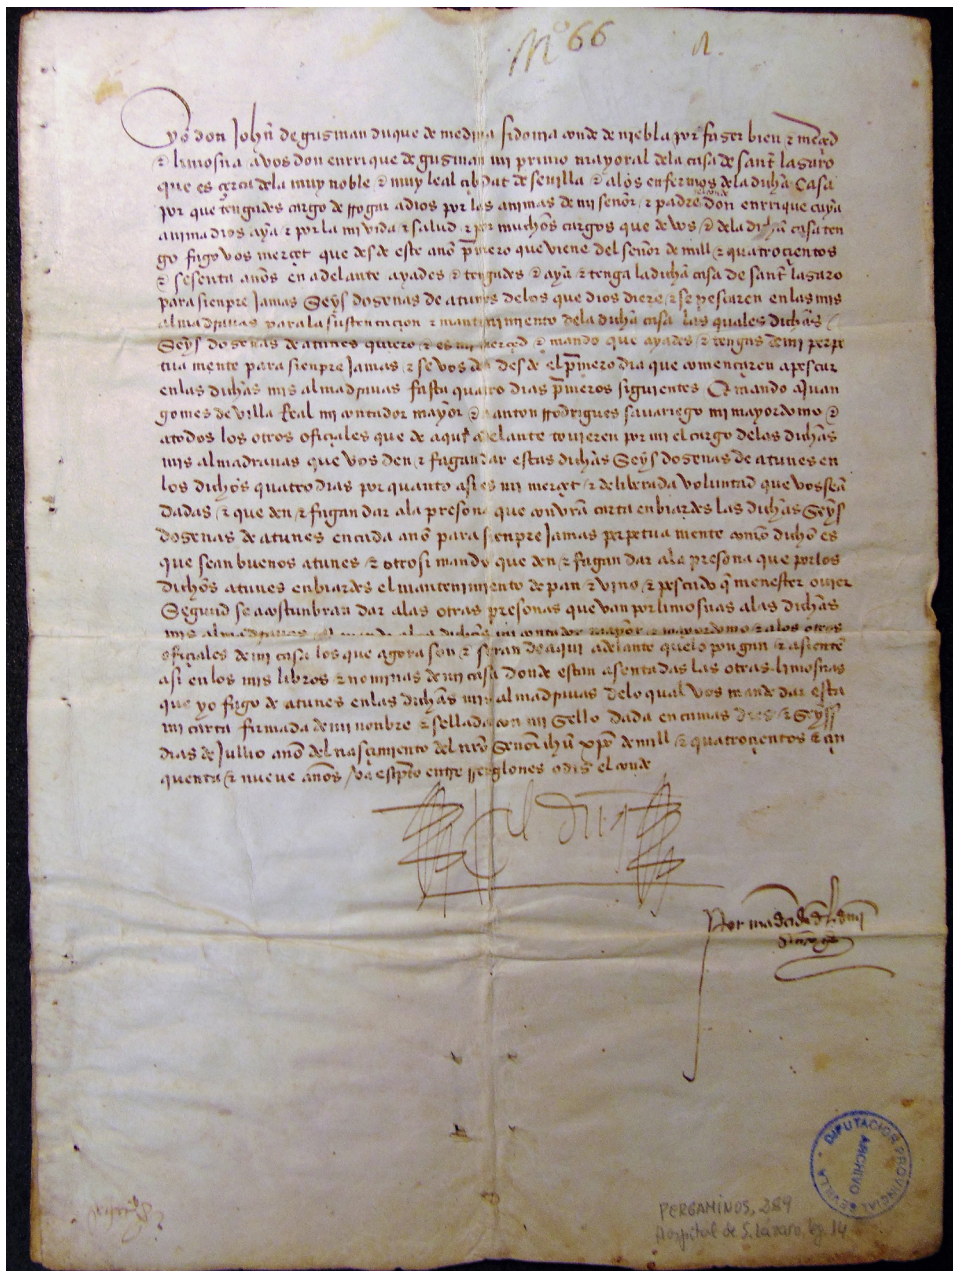 Nº 66
yo don Johñ de gusman duque de medina sidonia conde de niebla por faser bien & merçed
& limosna a vos don enrrique de gusman mi primo mayoral de la casa de sant lasaro
que es çerca de la muy noble & muy leal çibdat de sevilla & a los enfermos de la dicha casa
por que tengades cargo de rrogar a dios por las animas de mi señor & padre el conde don enrrique cuya
anima dios aya & por la mi vida & salud & por muchos cargos que de vos & de la dicha casa ten
go fago vos merçet que desde este año primero que viene del señor de mill & quatroçientos
& sesenta años en adelante ayades & tengades & aya & tenga la dicha casa de sant lasaro
para sienpre jamas seys dosenas de atunes de los que dios diere & se pescaren en las mis
almadravas para la sustentacion & mantenimiento de la dicha casa las quales dichas
seys dosenas de atunes quiero & es mi merçed & mando que ayades & tengas de mi perpe
tua mente para sienpre jamas & se vos den desde el primero dia que començaren a pescar
en las dichas mis almadravas fasta quatro dias primeros siguientes & mando a Juan
gomes de villa Real mi contador mayor & a anton rrodrigues savariego mi mayordomo &
a todos los otros ofiçiales que de aqui adelante tovieren por mi el cargo de las dichas
mis almadravas que vos den & fagan dar estas dichas seys dosenas de atunes en
los dichos quatro dias por quanto asi es mi merçet & deliberada voluntad que vos sean
dadas & que den & fagan dar a la presona que con vra carta enbiardes las dichas seys
dosenas de atunes en cada año para sienpre jamas perpetua mente como dicho es
que sean buenos atunes & otrosi mando que den & fagan dar a la presona que por los
dichos atunes enbiardes el mantenimiento de pan & vino & pescado q menester ovier
Segund se acostunbran dar a las otras presonas que van por limosnas a las dichas
mis almadravas & mando al dicho mi contador mayor & mayordomo & a los otros
ofiçiales de mi casa los que agora son & seran de aqui adelante que lo pongan & asienten
asi en los mis libros & nominas de mi casa donde estan asentadas las otras limosnas
que yo fago de atunes en las dichas mis almadravas de lo qual vos mande dar esta
mi carta firmada de mi nonbre & sellada con mi sello dada en camas dies & seys
dias de Jullio año del nasçimiento del nro señor ihu xpo de mill & quatroçientos & çin
quenta & nueve años va escpto entre rrenglones o dis el conde
el duq
Por mandado del duq mi
señor
DIPUTACION PROVINCIAL SEVILLA
ARCHIVO
PERGAMINOS, 289
Hospital de S. Lázaro, lg. 14